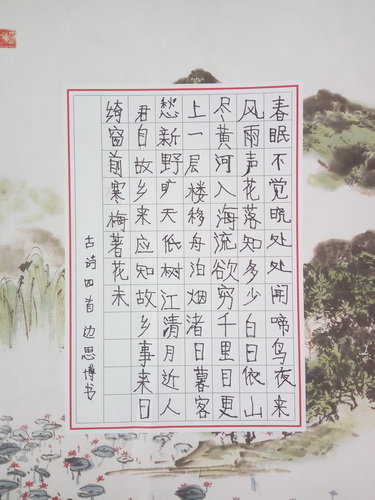 春眠不觉晓处处闻啼鸟夜来
风雨声花落知多少白日依山
尽黄河入海流欲穷千里目更
上一层楼移舟泊烟渚日暮客
愁新野旷天低树江清月近人
君自故乡来应知故乡事来日
绮窗前寒梅著花未
古诗四首 边思博书